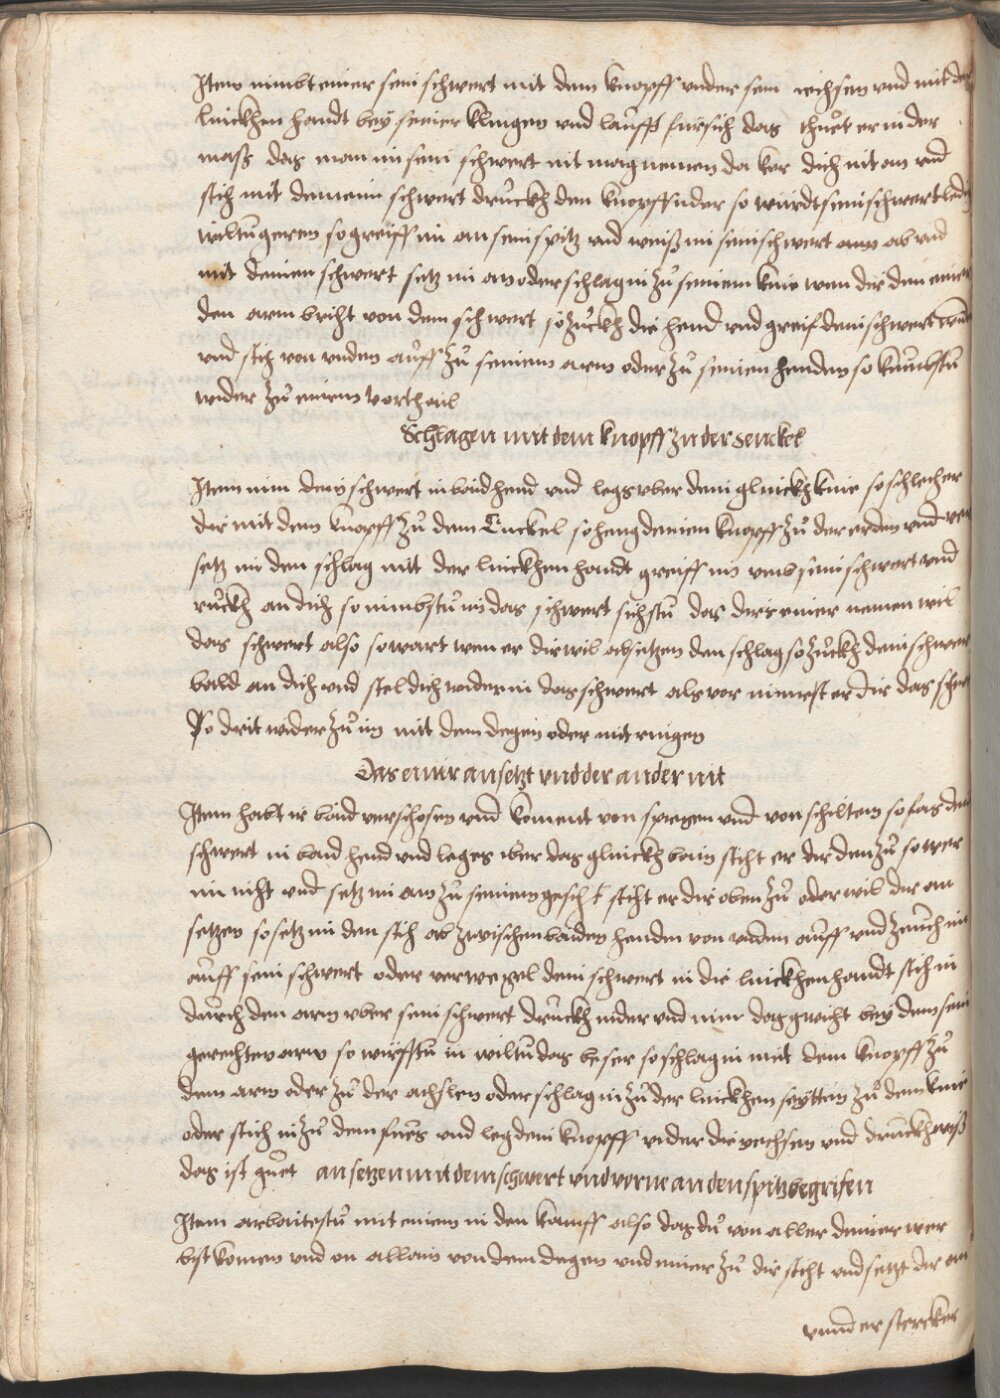 Item nimbt einer sein schwert mit dem knopff vnder sein iechsen vnd mit der
linckhen handt bey seiner klingen vnd laufft fürsich das thuet er in der
mass das man im sein schwert nit mag nemen da ker dich nit an vnd
stich mit deinem schwert druckh den knopff nider so würdt sein schwert ledig
wiltu geren so greiff im an sein spitz vnd weiss im sein schwert ab vnd
mit deinem schwert setz im an oder schlag in zu seinem knie wen dir den einer
den arm bricht von dem schwert so zuckh die hend vnd greif dein schwert
vnd stich von vnden auff zu seinem arm oder zu seinen henden so kumbstu
wider zu einem vorthail
Schlagen mit dem knopff zu der senckel
Item nim dein schwert in baid hend vnd legs vber dein glinckh knie so schlecht er
dir mit dem knopff zu dem Enckel so heng deinen knopff zu der erden vnd ver
setz im den schlag mit der linckhen handt greiff im vmb sein schwert vnd
ruckh an dich so nimbstu im das schwert sichstu das dirs einer nemen wil
das schwert also so wart wen er dir wil absetzen den schlag so zuckh dein schwert
bald an dich vnd stel dich wider in das schwert als vor nimest er dir das schwert
So drit wider zu im mit dem degen oder mit ringen
Das einer ansetzt vnd der ander nit
Item habt ir baid verschosen vnd koment von spiesen vnd von schilten so fas dein
schwert in baid hend vnd leges vber das glinckh bain sticht er dir den zu so wer
im nicht vnd setz im an zu seinem gesicht sticht er dir oben zu oder wil dir an
setzen so setz im den stich ab zwischen baiden henden von vnden auff vnd zeuch im
auff sein schwert oder verwexel dein schwert in die linckhen handt stich in
durch den arm vber sein schwert druckh nider vnd nim das gwicht bey dem sein
gerechten arm so wirffstu in wiltu das beser so schlag in mit dem knopff zu
dem arm oder zu der achslen oder schlag in zu der linckhen seytten zu dem knie
oder stich in zu dem fues vnd leg dein knopff vnder die iechsen vnd druckh
das ist guet ansetzen mit dem schwert vnd vorne an den spitz begrifen
Item arbaitestu mit einem in den kampff also das du von aller deiner wer
bist komen vnd on allain von dem degen vnd einer zu dir sticht vnd setzt dir an
vnnd er stercker